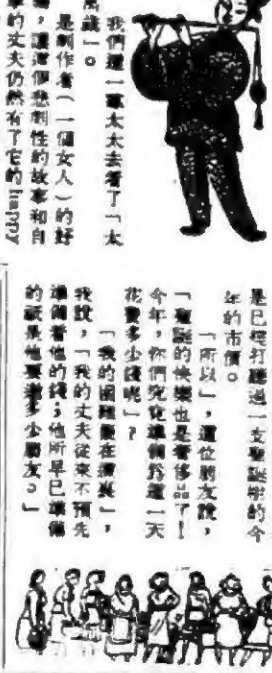 我們這一羣太太去看了「太太
萬歲」。
是制作者（一個女人）的好
，讓這個悲劇性的故事和自
的丈夫仍然有了它的Happy
是已經打聽過一支聖誕樹的今
年的市價。
「所以」，這位朋友說，
「聖誕的快樂也是奢侈品了！
今年，你們究竟準備為這一天
花費多少錢呢」？
「我的困難就在這裏」，
我說，「我的丈夫從來不預先
準備着他的錢；他所早已準備
的祇是他要請多少朋友。」